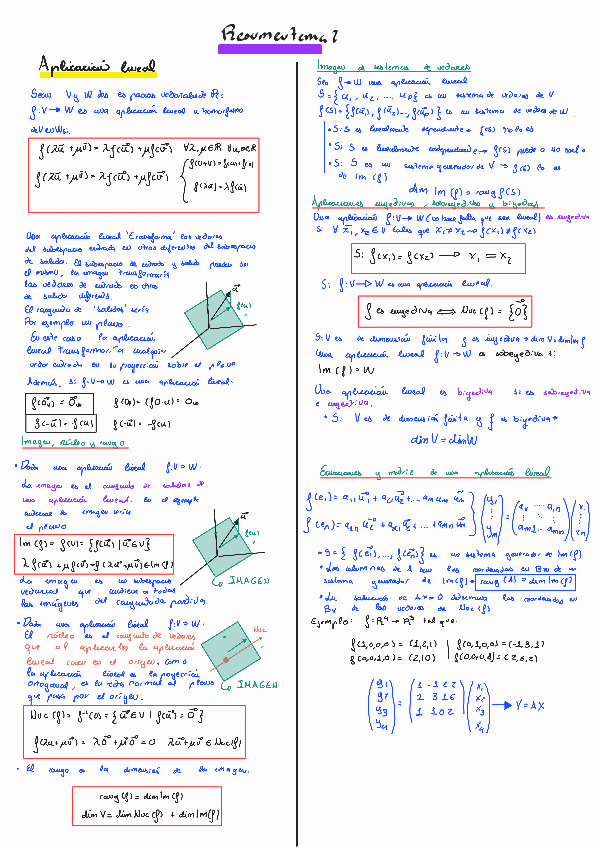 Resumen tema 2
Aplicación lineal
Sean V y W dos es pacios vectoriales de R.
f: V → W es una aplicación lineal u homorfismo
de V en W si:
f(λū + μv̄) = λf(ū) + μf(v̄) ∀λ, μ ∈ R ∀u, v ∈ R
f(u+v) = f(u) + f(v)
f(λū + μv̄) = λf(ū) + μf(v̄)
f(λū) = λf(ū)
Una aplicación lineal "transforma" los vectores
del subespacio entrada en otros diferentes del subespacio
de salida. El subespacio de entrada y salida pueden ser
el mismo, la imagen transformaría
los vectores de entrada en otros
de salida diferents.
El conjunto de "salidas" sería
Por ejemplo un plano.
En este caso la aplicación
lineal transformaría cualquier
vector entrada en su proyección sobre el plano
Además, si f: V → W es una aplicación lineal:
f(0v) = 0w f(0v) = f(0·u) = 0w
f(-ū) = -f(u) f(-ū) = -f(u)
Imagen, núcleo y rango
• Dada una aplicación lineal f: V → W.
La imagen es el conjunto de salidas de
una aplicación lineal. En el ejemplo
anterior la imagen sería
el plano
Im(f) = f(V) = {f(ū) | ū ∈ V}
λf(ū) + μf(v̄) = f(λū + μv̄) ∈ Im(f)
La imagen es un subespacio
vectorial que contiene a todas
las imágenes del conjunto de partida
↳ IMAGEN
• Dada una aplicación lineal f: V → W.
El núcleo es el conjunto de vectores
que al aplicarles la aplicación
lineal caen en el origen. Como
la aplicación lineal es la proyección
ortogonal, es la recta normal al plano
que pasa por el origen.
Nuc
↳ IMAGEN
Nuc (f) = f⁻¹(0) = {ū ∈ V | f(ū) = 0}
f(λu + μv̄) = λ0 + μ0 = 0 λū + μv̄ ∈ Nuc(f)
• El rango es la dimensión de la imagen.
rang(f) = dim Im(f)
dim V = dim Nuc(f) + dim Im(f)
Imagen de sistemas de vectores
Sea f → W una aplicación lineal
S = {u₁, u₂, ..., up} es un sistema de vectores de V
f(S) = {f(u₁), f(u₂)..., f(up)} es un sistema de vectores de W.
• Si S es linealmente dependiente → f(S) no lo es
• Si S es linealmente independiente → f(S) puede o no serlo
• Si S es un sistema generador de V → f(S) lo es
de Im(f)
dim Im(f) = rang f(S)
Aplicaciones inyectivas, sobreyectivas y biyectivas
Una aplicación f: V → W (no hace falta que sea lineal) es inyectiva
si ∀ x₁, x₂ ∈ V tales que x₁ ≠ x₂ → f(x₁) ≠ f(x₂)
Si f(x₁) = f(x₂) → x₁ = x₂
Si f: V → W es una aplicación lineal.
f es inyectiva ⟺ Nuc(f) = {0}
Si V es de dimensión finita f es inyectiva → dim V = dim Im f
Una aplicación lineal f: V → W es sobreyectiva si
Im(f) = W
Una aplicación lineal es biyectiva si es sobreyectiva
e inyectiva.
• Si V es de dimensión finita y f es biyectiva →
dim V = dim W
Ecuaciones y matriz de una aplicación lineal
• S = {f(e₁), ..., f(en)} es un sistema generador de Im(f)
• Las columnas de A son las coordenadas en Bw de un
sistema generador de Im(f) → rang(A) = dim Im(f)
• La solución de Ax = 0 determina las coordenadas en
Bv de los vectores de Nuc(f)
Ejemplo: f: R⁴ → R³ tal que:
f(1,0,0,0) = (1,2,1) f(0,1,0,0) = (-1,3,1)
f(0,0,1,0) = (2,1,0) f(0,0,0,1) = (2,6,2)
→ Y = AX